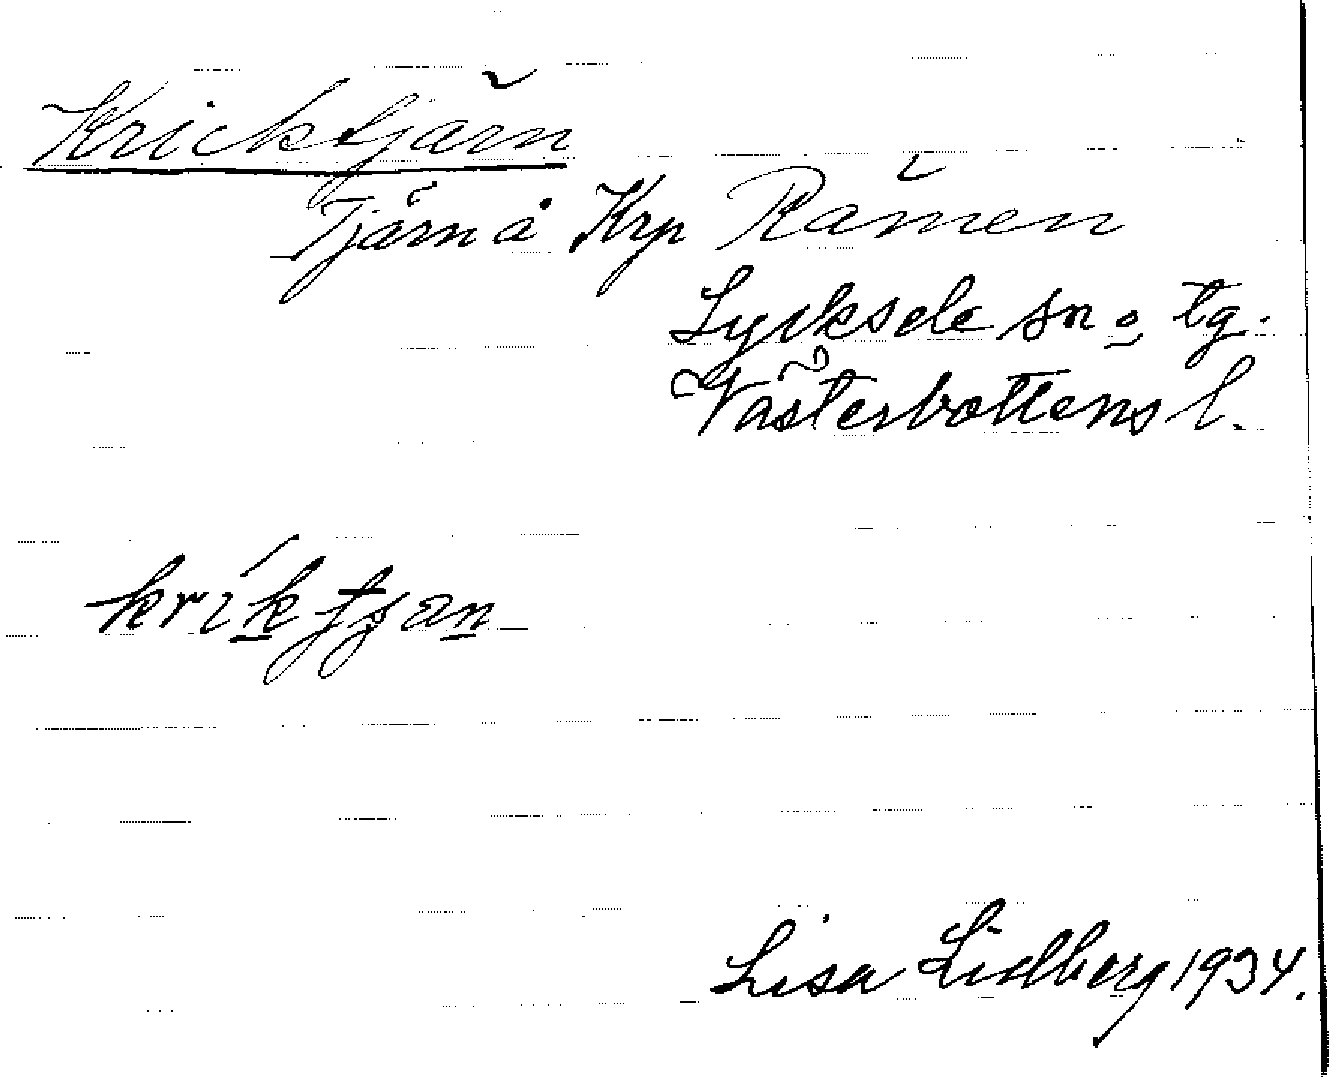 Kricktjärn
Tjärn å Krp Råmen
Lycksele sn o tg.
Västerbottens l.
Lisa Lidberg 1934.